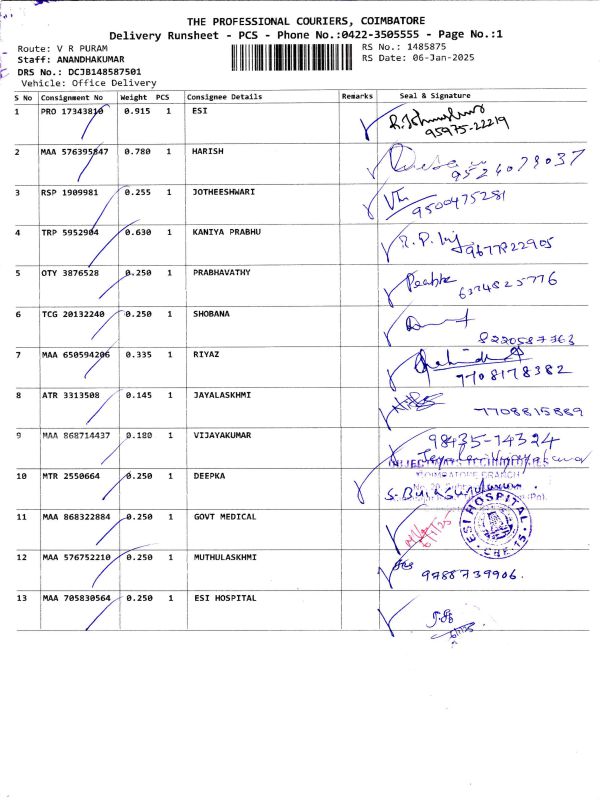 THE PROFESSIONAL COURIERS, COIMBATORE
Delivery Runsheet - PCS - Phone No.:0422-3505555 - Page No.:1
Route: V R PURAM
RS No.: 1485875
Staff: ANANDHAKUMAR
RS Date: 06-Jan-2025
DRS No.: DCJB148587501
Vehicle: Office Delivery
S No Consignment No Weight PCS Consignee Details Remarks Seal & Signature
1 PRO 17343810 0.915 1 ESI
95975-22219
2 MAA 576395847 0.780 1 HARISH
9524079037
3 RSP 1909981 0.255 1 JOTHEESHWARI
9500475281
4 TRP 5952904 0.630 1 KANIYA PRABHU
9677822905
5 OTY 3876528 0.250 1 PRABHAVATHY
6374825776
6 TCG 20132240 0.250 1 SHOBANA
8220587763
7 MAA 650594206 0.335 1 RIYAZ
7708178382
8 ATR 3313508 0.145 1 JAYALASKHMI
7708815889
9 MAA 868714437 0.180 1 VIJAYAKUMAR
98435-74324
10 MTR 2550664 0.250 1 DEEPKA
COIMBATORE BRANCH
11 MAA 868322884 0.250 1 GOVT MEDICAL
6/1/25
ESI HOSPITAL
CBE 15
12 MAA 576752210 0.250 1 MUTHULASKHMI
9788739906.
13 MAA 705830564 0.250 1 ESI HOSPITAL